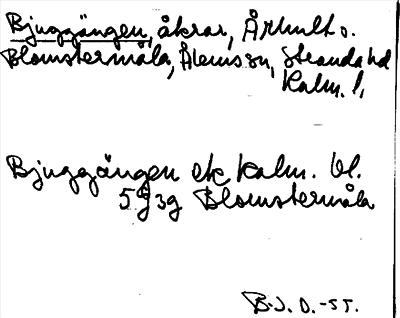 Bjuggängen, åkrar, Århult o.
Blomstermåla, Ålems sn, Stranda hd
Kalm. l,
Bjuggängen ek kalm. bl.
5g3g Blomstermåla
B.J.O.-55.